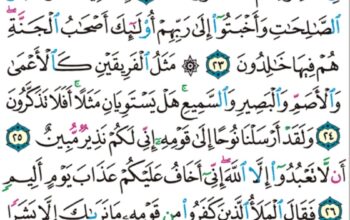 ٱلصَّـٰلِحَـٰتِ وَأَخْبَتُوٓا۟ إِلَىٰ رَبِّهِمْ أُو۟لَـٰٓئِكَ أَصْحَـٰبُ ٱلْجَنَّةِ ۖ
هُمْ فِيهَا خَـٰلِدُونَ ٢٣ ۞ مَثَلُ ٱلْفَرِيقَيْنِ كَٱلْأَعْمَىٰ
وَٱلْأَصَمِّ وَٱلْبَصِيرِ وَٱلسَّمِيعِ ۚ هَلْ يَسْتَوِيَانِ مَثَلًا ۚ أَفَلَا تَذَكَّرُونَ
٢٤ وَلَقَدْ أَرْسَلْنَا نُوحًا إِلَىٰ قَوْمِهِۦٓ إِنِّى لَكُمْ نَذِيرٌ مُّبِينٌ ٢٥
أَن لَّا تَعْبُدُوٓا۟ إِلَّا ٱللَّهَ ۖ إِنِّىٓ أَخَافُ عَلَيْكُمْ عَذَابَ يَوْمٍ أَلِيمٍ
٢٦ فَقَالَ ٱلْمَلَأُ ٱلَّذِينَ كَفَرُوا۟ مِن قَوْمِهِۦ مَا نَرَىٰكَ إِلَّا بَشَرًا